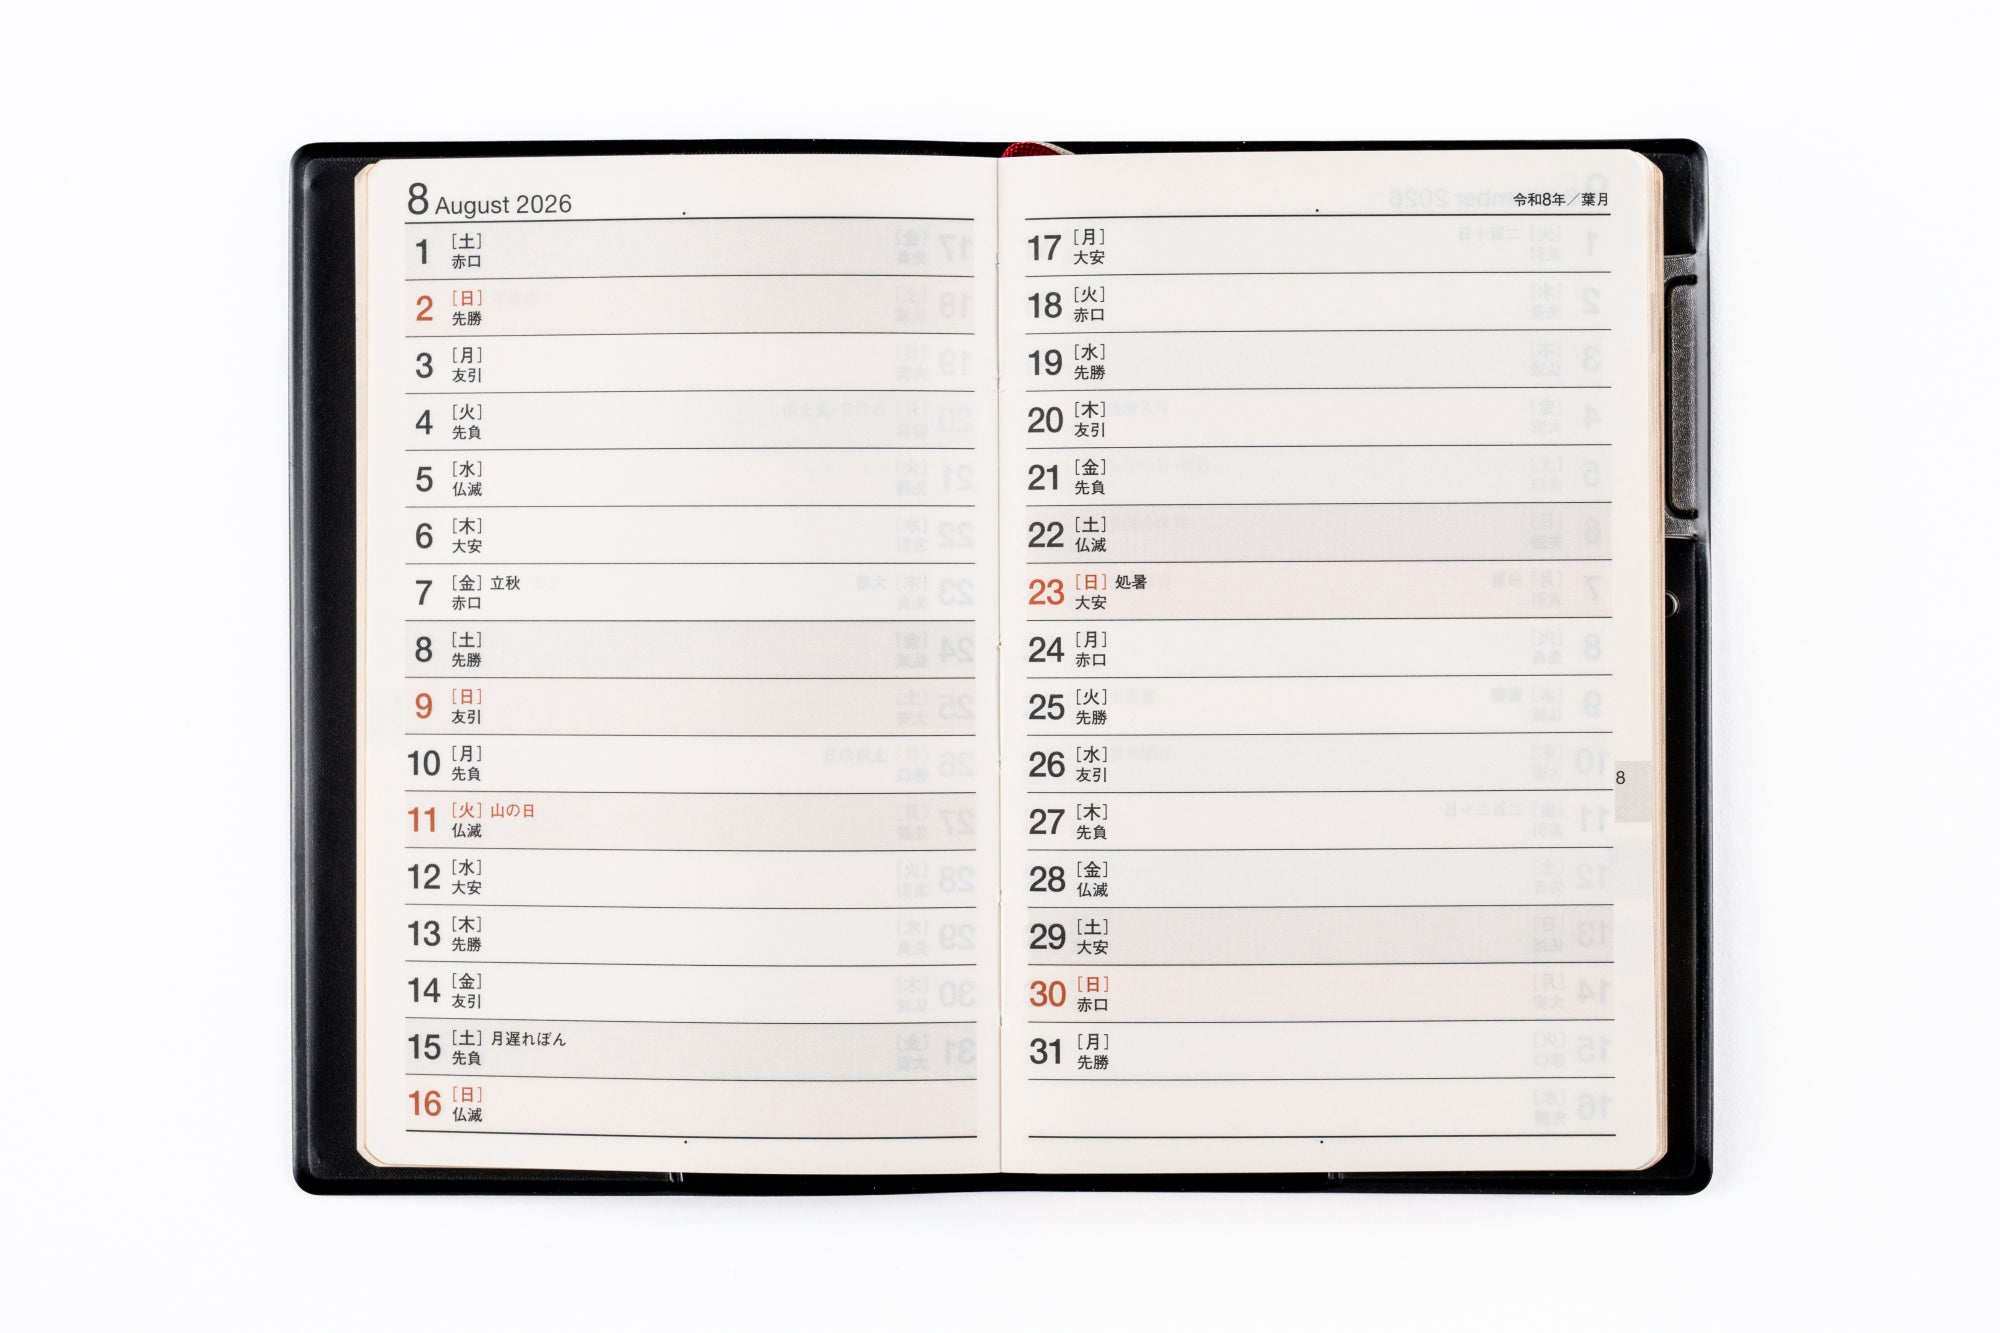 8 August 2026
1 [土]
赤口
2 [日]
先勝
3 [月]
友引
4 [火]
先負
5 [水]
仏滅
6 [木]
大安
7 [金] 立秋
赤口
8 [土]
先勝
9 [日]
友引
10 [月]
先負
11 [火] 山の日
仏滅
12 [水]
大安
13 [木]
先勝
14 [金]
友引
15 [土] 月遅れぼん
先負
16 [日]
仏滅
令和8年/葉月
17 [月]
大安
18 [火]
赤口
19 [水]
先勝
20 [木]
友引
21 [金]
先負
22 [土]
仏滅
23 [日] 処暑
大安
24 [月]
赤口
25 [火]
先勝
26 [水]
友引
27 [木]
先負
28 [金]
仏滅
29 [土]
大安
30 [日]
赤口
31 [月]
先勝
8